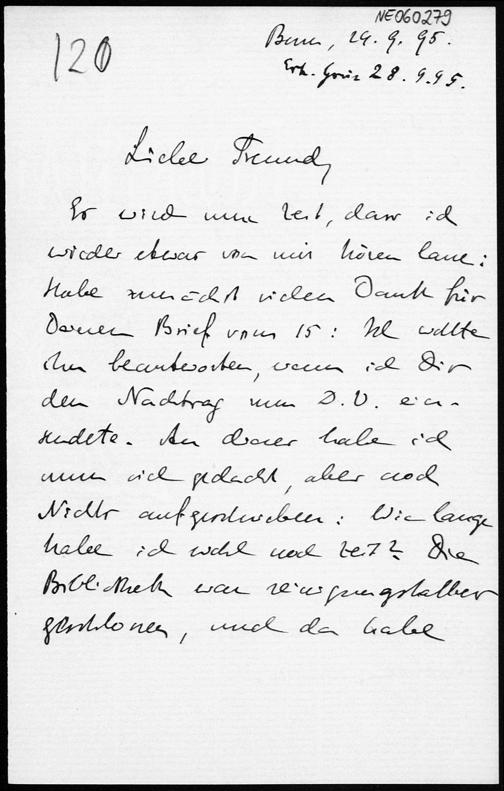 NE060279
120
Bern, 24. 9. 95.
Erh. 28. 9. 95.
Lieber Freund,
Es wird nun Zeit, dass ich
wieder etwas von mir hören lasse:
Habe zunächst vielen Dank für
Deinen Brief vom 15: Ich wollte
ihn beantworten, wenn ich Dir
den Nachtrag zum D.V. ein-
sendete. An diesen habe ich
nun viel gedacht, aber noch
Nichts aufgeschrieben: Wie lange
habe ich wohl noch Zeit? Die
Bibliothek war reinigungshalber
geschlossen, und da habe